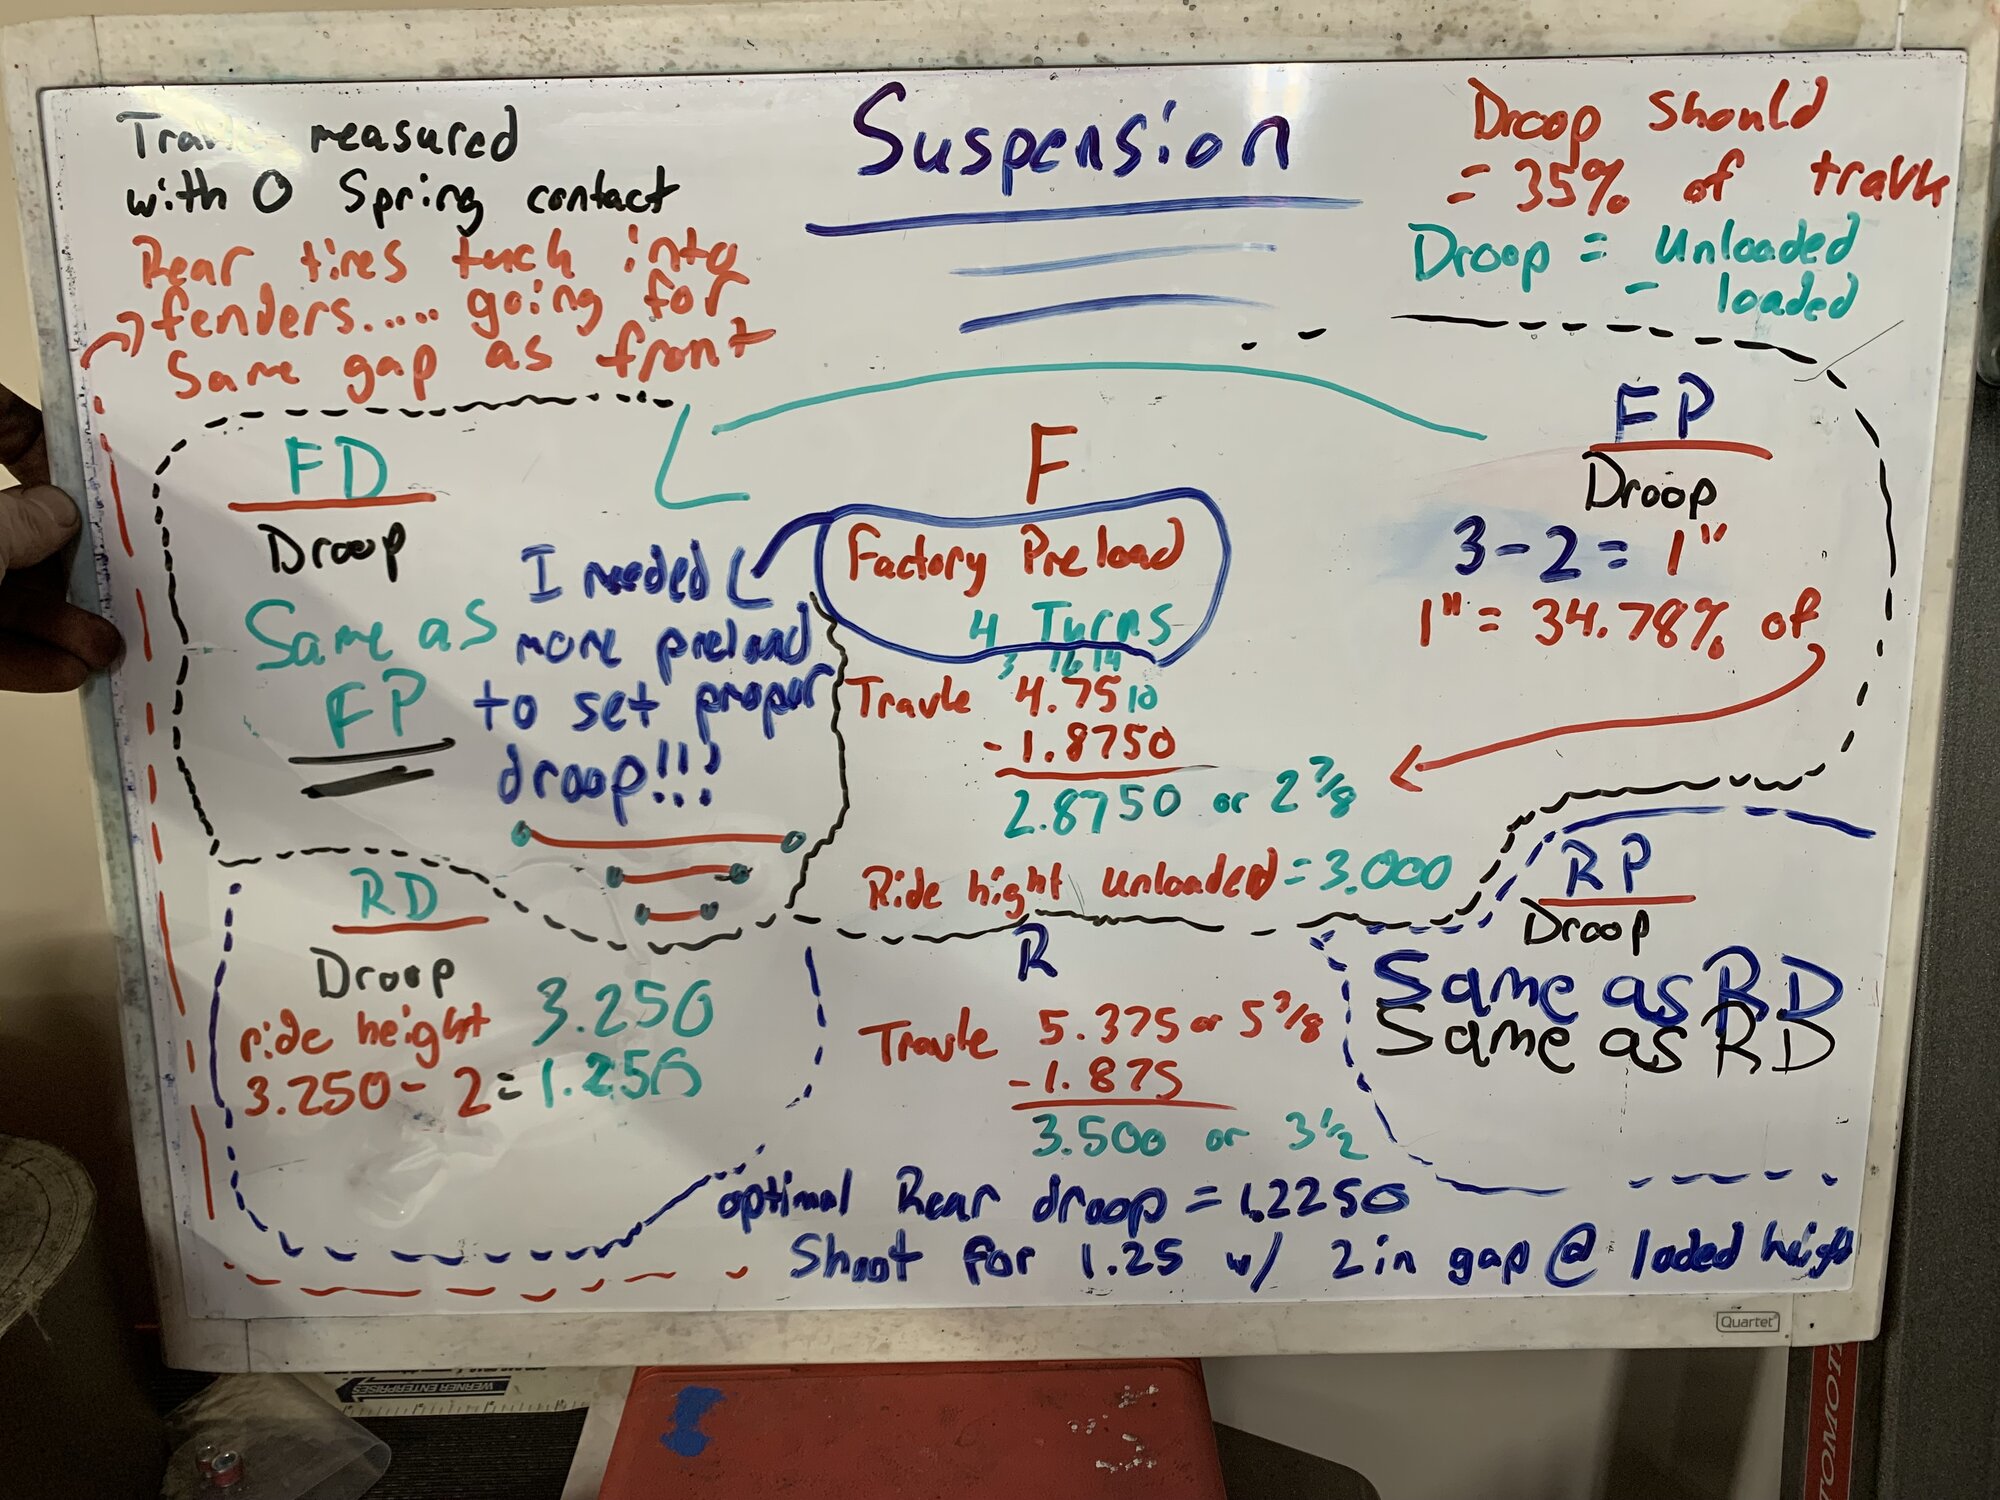 Suspension
measured
with 0 Spring contact
Rear tires tuck into
fenders..... going for
Same gap as front
Droop Should
= 35% of travle
Droop = Unloaded
- loaded
FD
Droop
Same as
FP
I needed
more preload
to set proper
droop!!!
F
Factory Preload
4 Turns
3 16 14
Travle 4.7510
- 1.8750
2.8750 or 2 7/8
Ride hight unloaded = 3.000
FP
Droop
3 - 2 = 1"
1" = 34.78% of
RD
Droop
ride height 3.250
3.250 - 2 = 1.250
R
Travle 5.375 or 5 3/8
- 1.875
3.500 or 3 1/2
RP
Droop
Same as RD
Same as RD
optimal Rear droop = 1.2250
Shoot for 1.25 w/ 2 in gap @ loded height
Quartet
WERNER ENTERPRISES